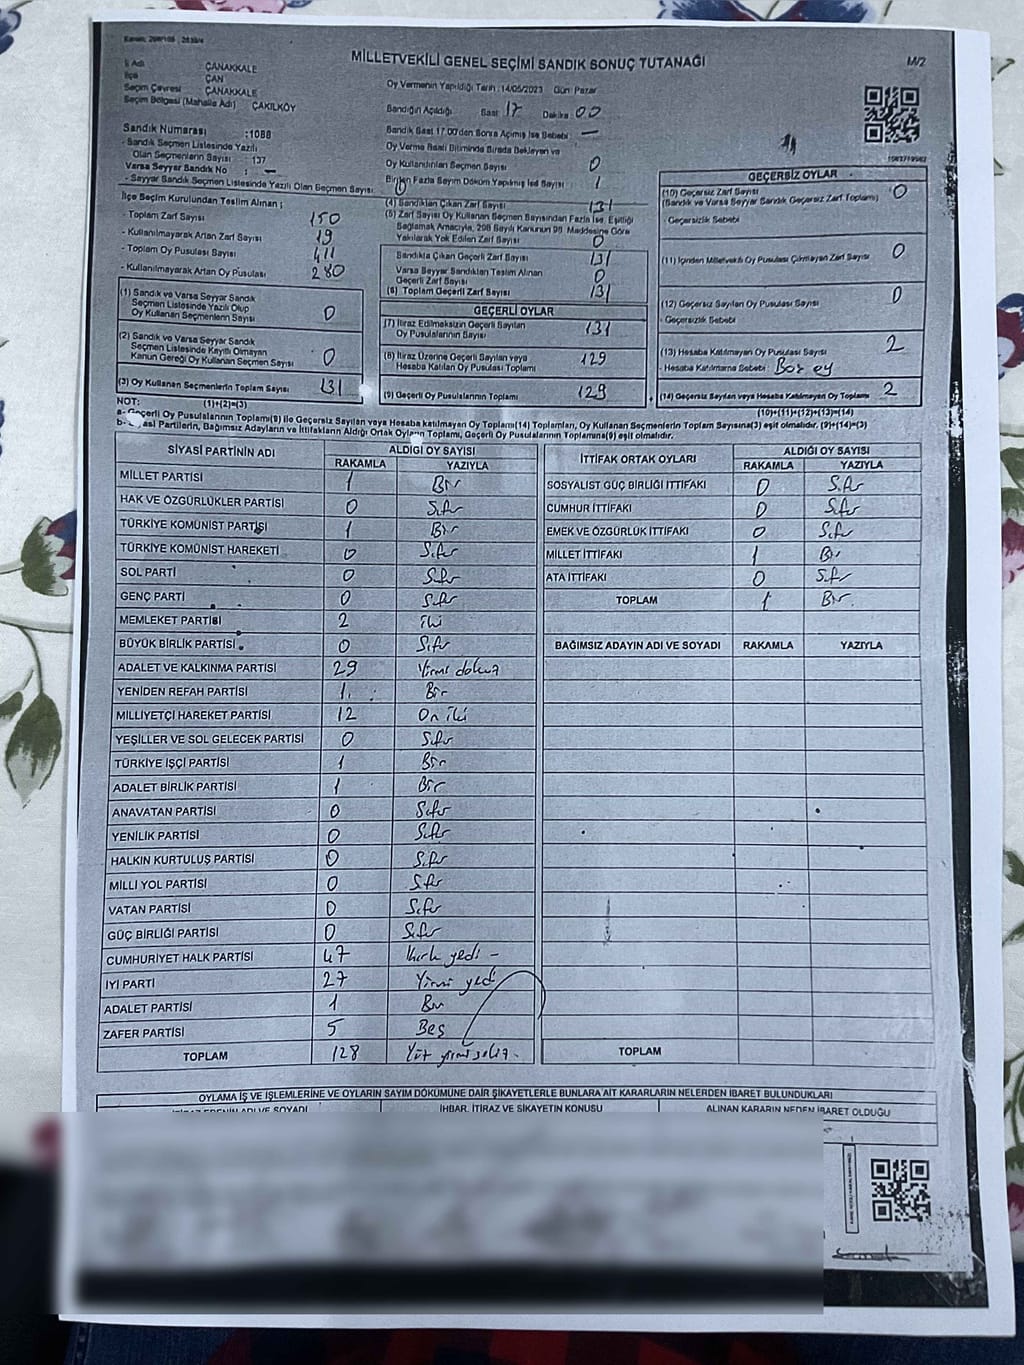 MİLLETVEKİLİ GENEL SEÇİMİ SANDIK SONUÇ TUTANAĞI
M/2
İl Adı ÇANAKKALE
İlçe ÇAN
Seçim Çevresi ÇANAKKALE
Seçim Bölgesi (Mahalle Adı) ÇAKILKÖY
Sandık Numarası :1088
- Sandık Seçmen Listesinde Yazılı
Olan Seçmenlerin Sayısı : 137
Varsa Seyyar Sandık No : -
- Seyyar Sandık Seçmen Listesinde Yazılı Olan Seçmen Sayısı: 0
Oy Vermenin Yapıldığı Tarih : 14/05/2023 Gün: Pazar
Sandığın Açıldığı Saat 17 Dakika 00
Sandık Saat 17.00'den Sonra Açılmış İse Sebebi: -
Oy Verme Saati Bitiminde Sırada Bekleyen ve
Oy Kullandırılan Seçmen Sayısı 0
Birden Fazla Sayım Döküm Yapılmış İse Sayısı 1
İlçe Seçim Kurulundan Teslim Alınan ;
- Toplam Zarf Sayısı 150
- Kullanılmayarak Artan Zarf Sayısı 19
- Toplam Oy Pusulası Sayısı 411
- Kullanılmayarak Artan Oy Pusulası 280
(1) Sandık ve Varsa Seyyar Sandık
Seçmen Listesinde Yazılı Olup
Oy Kullanan Seçmenlerin Sayısı 0
(2) Sandık ve Varsa Seyyar Sandık
Seçmen Listesinde Kayıtlı Olmayan
Kanun Gereği Oy Kullanan Seçmen Sayısı 0
(3) Oy Kullanan Seçmenlerin Toplam Sayısı 131
(4) Sandıktan Çıkan Zarf Sayısı 131
(5) Zarf Sayısı Oy Kullanan Seçmen Sayısından Fazla İse, Eşitliği
Sağlamak Amacıyla, 298 Sayılı Kanunun 98. Maddesine Göre
Yakılarak Yok Edilen Zarf Sayısı 0
Sandıkta Çıkan Geçerli Zarf Sayısı 131
Varsa Seyyar Sandıktan Teslim Alınan
Geçerli Zarf Sayısı 0
(6) Toplam Geçerli Zarf Sayısı 131
GEÇERLİ OYLAR
(7) İtiraz Edilmeksizin Geçerli Sayılan
Oy Pusulalarının Sayısı 131
(8) İtiraz Üzerine Geçerli Sayılan veya
Hesaba Katılan Oy Pusulası Toplamı 129
(9) Geçerli Oy Pusulalarının Toplamı 129
GEÇERSİZ OYLAR
(10) Geçersiz Zarf Sayısı 0
(Sandık ve Varsa Seyyar Sandık Geçersiz Zarf Toplamı)
- Geçersizlik Sebebi
(11) İçinden Milletvekili Oy Pusulası Çıkmayan Zarf Sayısı 0
(12) Geçersiz Sayılan Oy Pusulası Sayısı 0
- Geçersizlik Sebebi:
(13) Hesaba Katılmayan Oy Pusulası Sayısı 2
- Hesaba Katılmama Sebebi: Boş oy
(14) Geçersiz Sayılan veya Hesaba Katılmayan Oy Toplamı 2
NOT: (1)+(2)=(3) (10)+(11)+(12)+(13)=(14)
a- Geçerli Oy Pusulalarının Toplamı(9) ile Geçersiz Sayılan veya Hesaba katılmayan Oy Toplamı(14) Toplamları, Oy Kullanan Seçmenlerin Toplam Sayısına(3) eşit olmalıdır. (9)+(14)=(3)
b- Siyasi Partilerin, Bağımsız Adayların ve İttifakların Aldığı Ortak Oyların Toplamı, Geçerli Oy Pusulalarının Toplamına(9) eşit olmalıdır.
SİYASİ PARTİNİN ADI ALDIĞI OY SAYISI
RAKAMLA YAZIYLA
MİLLET PARTİSİ 1 Bir
HAK VE ÖZGÜRLÜKLER PARTİSİ 0 Sıfır
TÜRKİYE KOMÜNİST PARTİSİ 1 Bir
TÜRKİYE KOMÜNİST HAREKETİ 0 Sıfır
SOL PARTİ 0 Sıfır
GENÇ PARTİ 0 Sıfır
MEMLEKET PARTİSİ 2 iki
BÜYÜK BİRLİK PARTİSİ 0 Sıfır
ADALET VE KALKINMA PARTİSİ 29 Yirmi dokuz
YENİDEN REFAH PARTİSİ 1 Bir
MİLLİYETÇİ HAREKET PARTİSİ 12 On iki
YEŞİLLER VE SOL GELECEK PARTİSİ 0 Sıfır
TÜRKİYE İŞÇİ PARTİSİ 1 Bir
ADALET BİRLİK PARTİSİ 1 Bir
ANAVATAN PARTİSİ 0 Sıfır
YENİLİK PARTİSİ 0 Sıfır
HALKIN KURTULUŞ PARTİSİ 0 Sıfır
MİLLİ YOL PARTİSİ 0 Sıfır
VATAN PARTİSİ 0 Sıfır
GÜÇ BİRLİĞİ PARTİSİ 0 Sıfır
CUMHURİYET HALK PARTİSİ 47 Kırk yedi -
İYİ PARTİ 27 Yirmi yedi
ADALET PARTİSİ 1 Bir
ZAFER PARTİSİ 5 Beş
TOPLAM 128 Yüz yirmi sekiz
İTTİFAK ORTAK OYLARI ALDIĞI OY SAYISI
RAKAMLA YAZIYLA
SOSYALİST GÜÇ BİRLİĞİ İTTİFAKI 0 Sıfır
CUMHUR İTTİFAKI 0 Sıfır
EMEK VE ÖZGÜRLÜK İTTİFAKI 0 Sıfır
MİLLET İTTİFAKI 1 Bir
ATA İTTİFAKI 0 Sıfır
TOPLAM 1 Bir
BAĞIMSIZ ADAYIN ADI VE SOYADI RAKAMLA YAZIYLA
TOPLAM
OYLAMA İŞ VE İŞLEMLERİNE VE OYLARIN SAYIM DÖKÜMÜNE DAİR ŞİKAYETLERLE BUNLARA AİT KARARLARIN NELERDEN İBARET BULUNDUKLARI
İHBAR, İTİRAZ VE ŞİKAYETİN KONUSU ALINAN KARARIN NEDEN İBARET OLDUĞU